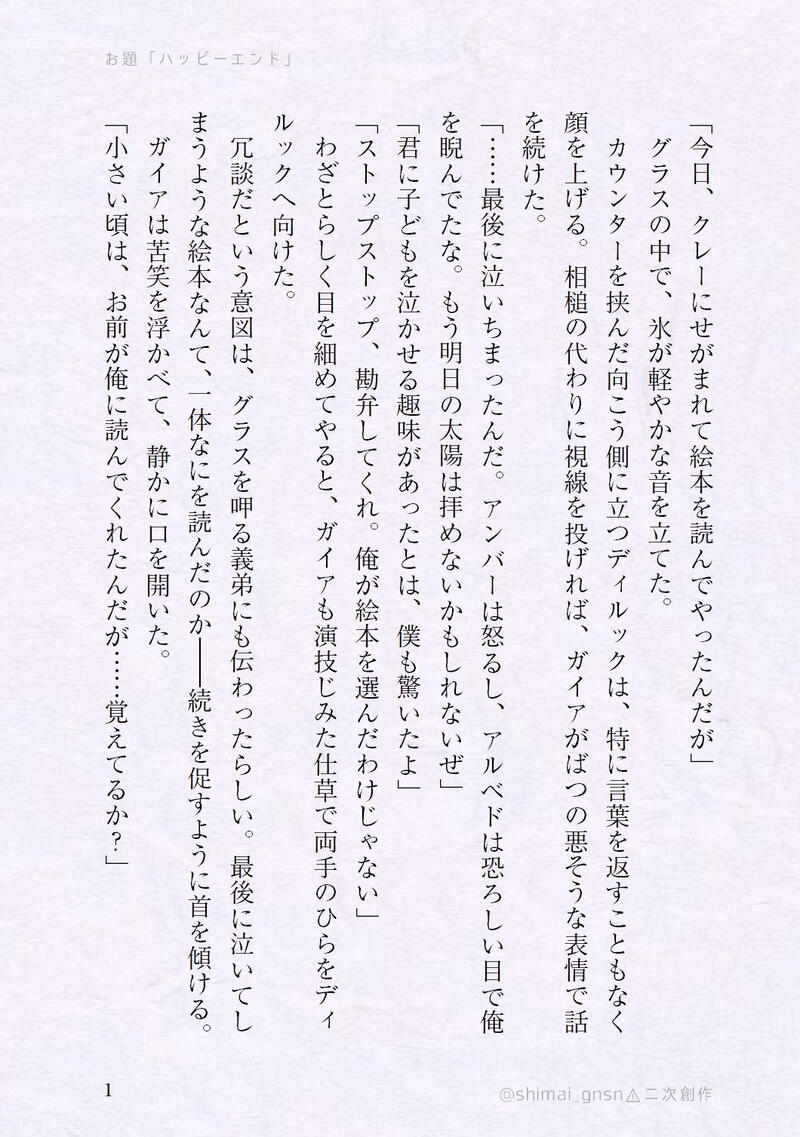 お題「ハッピーエンド」
「今日、クレーにせがまれて絵本を読んでやったんだが」
グラスの中で、氷が軽やかな音を立てた。
カウンターを挟んだ向こう側に立つディルックは、特に言葉を返すこともなく
顔を上げる。相槌の代わりに視線を投げれば、ガイアがばつの悪そうな表情で話
を続けた。
「……最後に泣いちまったんだ。アンバーは怒るし、アルベドは恐ろしい目で俺
を睨んでたな。もう明日の太陽は拝めないかもしれないぜ」
「君に子どもを泣かせる趣味があったとは、僕も驚いたよ」
「ストップストップ、勘弁してくれ。俺が絵本を選んだわけじゃない」
わざとらしく目を細めてやると、ガイアも演技じみた仕草で両手のひらをディ
ルックへ向けた。
冗談だという意図は、グラスを呷る義弟にも伝わったらしい。最後に泣いてし
まうような絵本なんて、一体なにを読んだのか――続きを促すように首を傾ける。
ガイアは苦笑を浮かべて、静かに口を開いた。
「小さい頃は、お前が俺に読んでくれたんだが……覚えてるか？」
1
@shimai_gnsn⚠二次創作